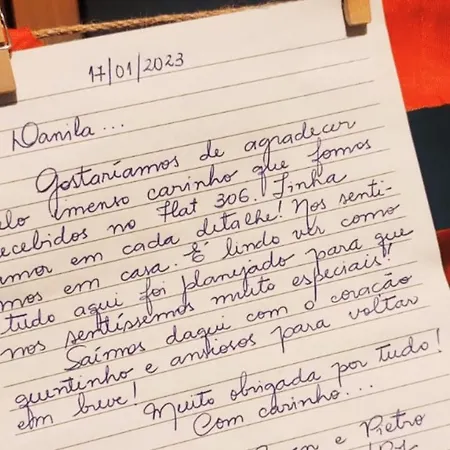 17/01/2023
Danila...
Gostaríamos de agradecer
elo imenso carinho que fomos
ecebidos no flat 306. Tinha
amor em cada detalhe! Nos senti-
mos em casa. É lindo ver como
tudo aqui foi planejado para que
nos sentíssemos muito especiais!
Saímos daqui com o coração
quentinho e ansiosos para voltar
em breve!
Muito obrigada por tudo!
Com carinho...
e Pietro